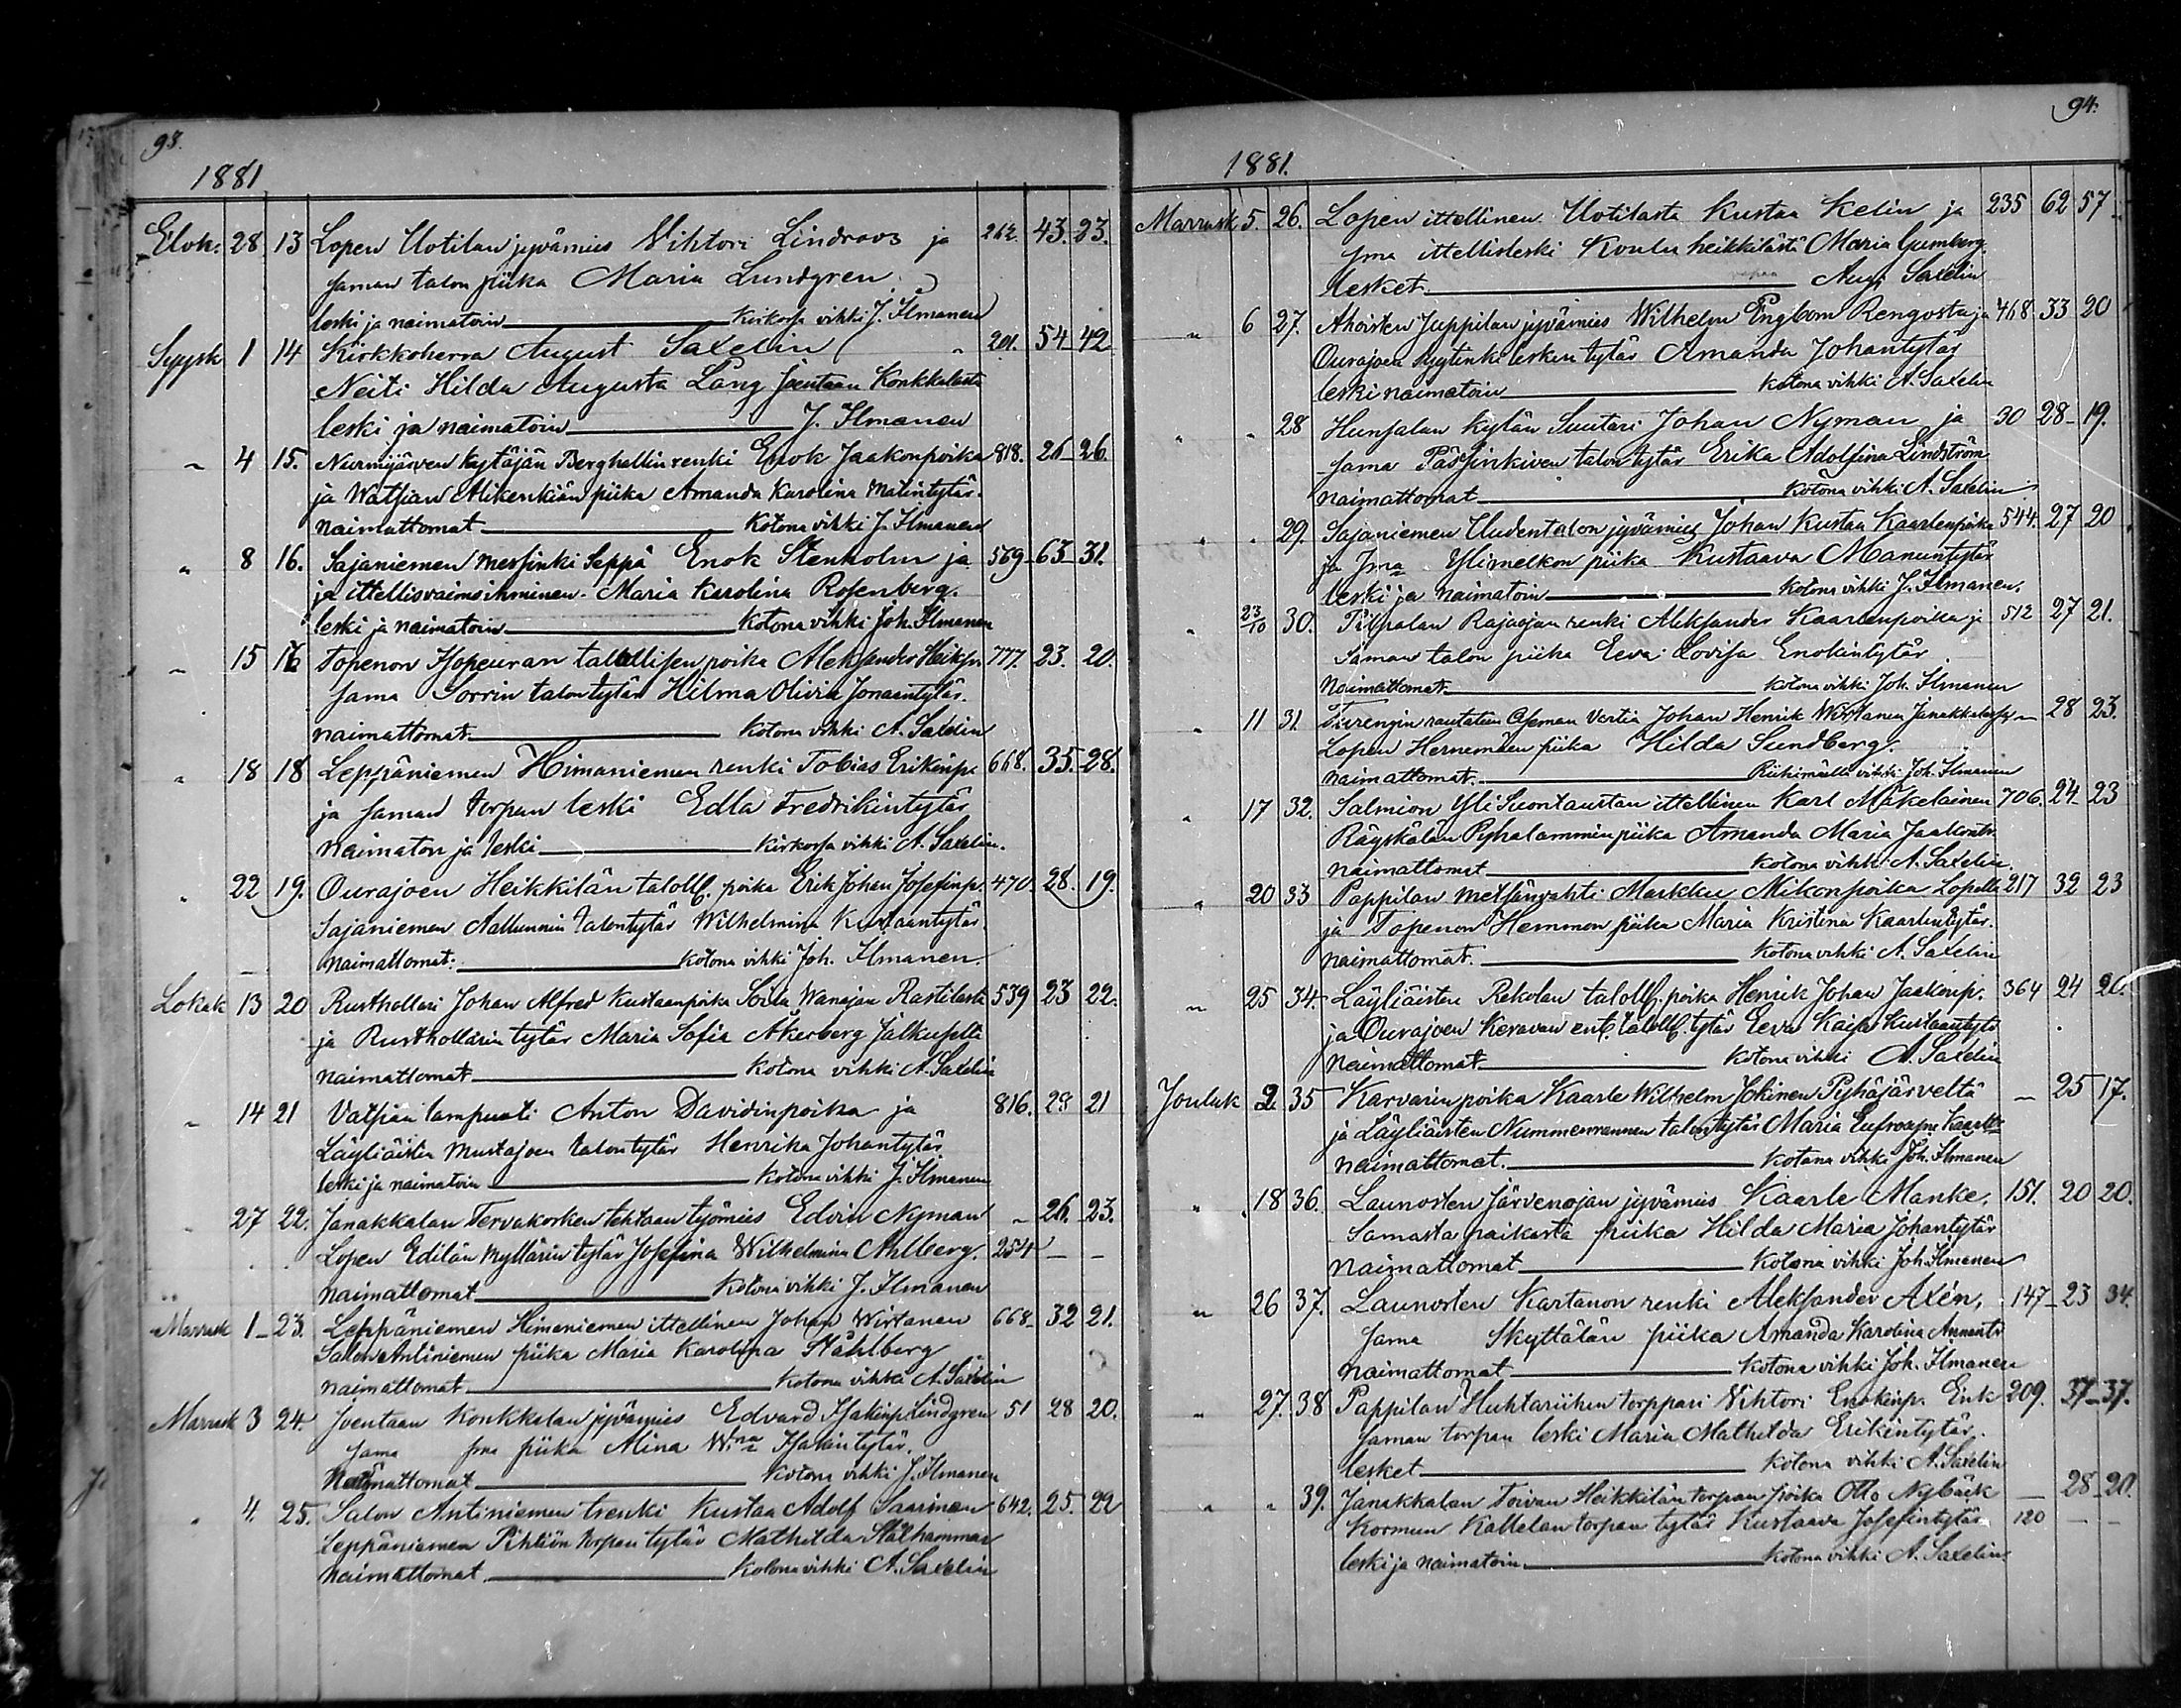 93.
1881
Elok. 28 13 Lopen Uotilan jyvämies Vihtori Lindroos ja 262. 43. 23.
saman talon piika Maria Lundgren.
leski ja naimatoin Kirkossa vihki J. Ilmanen
Syysk 1 14 Kirkkoherra August Saxelin 201. 54 42
Neiti Hilda Augusta Lång Joentaan Konkkalasta
leski ja naimatoin J. Ilmanen
" 4 15. Nurmijärven Kytäjän Berghallin renki Enok Jaakonpoika 818. 26 26.
ja Watsian Alikenkiän piika Amanda Karolina Matintytär.
naimattomat Kotona vihki J. Ilmanen
" 8 16. Sajaniemen messinki Seppä Enok Stenholm ja 569 63 31.
ja ittellisvaimoihminen Maria Karolina Rosenberg.
leski ja naimatoin Kotona vihki Joh. Ilmanen
" 15 Topenon talollisen poika Aleksander Heikinp. 777. 23. 20.
sama Sorrin talontytär Hilma Olivia Jonaantytär.
naimattomat Kotona vihki A. Saxelin
" 18 18 Leppäniemen Himaniemen renki Tobias Erikinp. 668. 35. 28.
ja saman torpan leski Edla Fredrikintytär
naimaton ja leski Kirkossa vihki A. Saxelin.
" 22 19. Ourajoen Heikkilän taloll. poika Erik Johan Josefinp. 470 28. 19.
Sajaniemen talontytär Wilhelmina Kustaantytär.
naimattomat. Kotona vihki Joh. Ilmanen.
Lokak 13 20 Rusthollari Johan Alfred Kustaanpoika Wanajan Rastilasta 539 23 22.
ja Rusthollarin tytär Maria Sofia Åkerberg
naimattomat Kotona vihki A. Saxelin
" 14 21 Vatsian lampuoti Anton Davidinpoika ja 816. 29 21
Läyliäisten Mustajoen talontytär Henrika Johantytär.
leski ja naimatoin Kotona vihki J. Ilmanen
" 27 22. Janakkalan Tervakosken tehtaan työmies Edvin Nyman " 26. 23.
Lopen Edilän Myllärin tytär Josefina Wilhelmina Ahlberg. 254 — —
naimattomat Kotona vihki J. Ilmanen
Marrask 1 23. Leppäniemen Himaniemen ittellinen Johan Wirtanen 668 32 21.
Salon Antiniemen piika Maria Karolina Ståhlberg
naimattomat Kotona vihki A. Saxelin
Marrask 3 24. Joentaan Konkkalan jyvämies Edvard Isakinp. Lindgren 51 28 20.
sama piika Alina Isakintytär.
naimattomat Kotona vihki J. Ilmanen
" 4. 25. Salon Antiniemen trenki Kustaa Adolf Saarinen 642. 25. 22
Leppäniemen torpan tytär Mathilda Stålhammar
naimattomat Kotona vihki A. Saxelin
94.
1881.
Marrask 5. 26. Lopen ittellinen Uotilasta Kustaa Kelin ja 235 62 57
ittellisleski Maria Gumberg.
lesket Aug. Saxelin
" 6 27. Ahoisten Juppilan jyvämies Wilhelm Engbom Rengosta ja 468. 33 20
Ourajoen lesken tytär Amanda Johantytär
leski naimatoin kotona vihki A. Saxelin
" " 28 Hunsalan kylän Suutari Johan Nyman ja 30 28 19.
sama talontytär Erika Adolfina Lindström
naimattomat Kotona vihki A. Saxelin
" " 29. Sajaniemen Uudentalon jyvämies Johan Kustaa Kaarlenpoika 544. 27 20
ja Ylimelkon piika Kustaava Manuntytär
leski ja naimatoin Kotona vihki J. Ilmanen.
" 23/10 30. Pilpalan Rajaojan renki Aleksander Kaarlenpoika ja 512 27 21.
saman talon piika Eeva Lovisa Enokintytär.
Naimattomat Kotona vihki Joh. Ilmanen
" 11 31. Turengin rautatien Aseman Vartia Johan Henrik Wirtanen " 28 23.
Lopen Hernemäen piika Hilda Sundberg.
naimattomat. Riihimäellä vihki Joh. Ilmanen
" 17 32. Salmion Yli Suontaustan ittellinen Karl Mäkeläinen 706. 24 23
Räyskälän Pyhälammin piika Amanda Maria
naimattomat Kotona vihki A. Saxelin.
" 20 33 Pappilan metsänvahti Markku Mikonpoika Lopelta 217 32 23
ja Topenon Hemmon piika Maria Kristina Kaarlentytär.
naimattomat. Kotona vihki A. Saxelin
" 25 34. Läyliäisten Rekolan taloll. poika Henrik Johan Jaakonp. 364 24 20.
ja Ourajoen Keravan ent. taloll. tytär Eeva Kaisa Kustaantytr
naimattomat Kotona vihki A. Saxelin
Jouluk 2 35 Karvarin poika Kaarle Wilhelm Jokinen Pyhäjärveltä — 25 17.
ja Läyliäisten Nummenrannen talontytär Maria Eufrosyne
naimattomat. Kotona vihki Joh. Ilmanen
" 18 36. Launosten Järvenojan jyvämies Kaarle Manke, 151. 20 20.
Samasta paikasta piika Hilda Maria Johantytär
naimattomat Kotona vihki Joh. Ilmanen
" 26 37. Launosten Kartanon renki Aleksander Axén, 147 23 34.
sama Skyttälän piika Amanda Karolina
naimattomat Kotona vihki Joh. Ilmanen
" 27. 38 Pappilan Huhtariihen torppari Vihtori Enokinp. 209. 37 37.
saman torpan leski Maria Mathilda Erikintytär.
lesket Kotona vihki A. Saxelin
" " 39. Janakkalan Toivan Heikkilän torpan poika Otto Nybäck — 28 20.
Kormun Kattelan torpan tytär Kustaava Josefintytär 120 — —
leski ja naimatoin. Kotona vihki A. Saxelin.